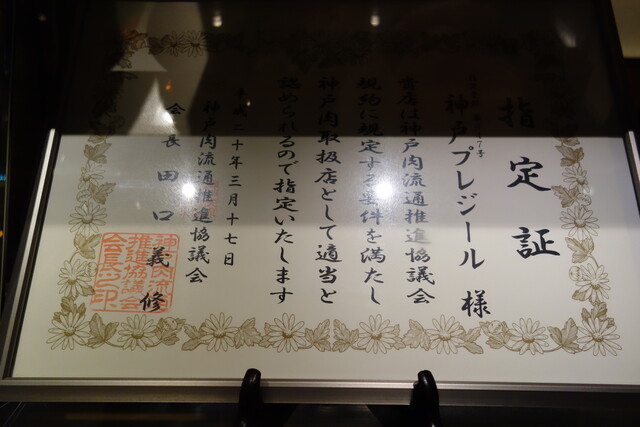 指定証
神戸プレジール 様
貴店は神戸肉流通推進協議会
規約に規定する要件を満たし
神戸肉取扱店として適当と
認められるので指定いたします
平成二十年三月十七日
神戸肉流通推進協議会
会長 田口 義修